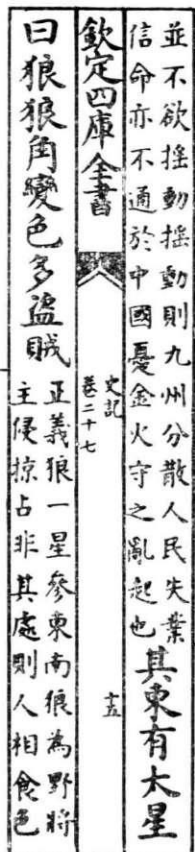 並不欲揺動揺動則九州分散人民失業
信命亦不通於中國憂金火守之亂起也
其東有大星
欽定四庫全書
史記
卷二十七
十五
曰狼狼角變色多盜賊
正義狼一星參東南狼為野將
主侵掠占非其處則人相食色